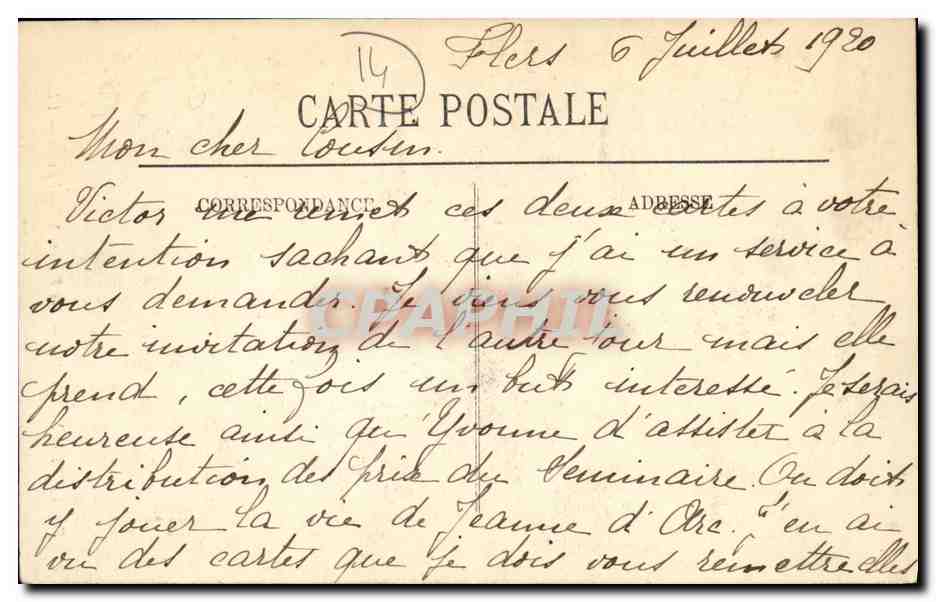 14
Flers 6 Juillet 1920
CARTE POSTALE
Mon cher Cousin.
CORRESPONDANCE
ADRESSE
Victor me remet ces deux cartes à votre
intention sachant que j'ai un service à
vous demander. Je viens vous renouveler
notre invitation de l'autre jour mais elle
prend, cette fois un but interessé. Je serais
heureuse ainsi qu'Yvonne d'assister à la
distribution des prix du Seminaire. On doit
y jouer la vie de Jeanne d'Arc. J'en ai
vu des cartes que je dois vous remettre elles
CPAPHIL